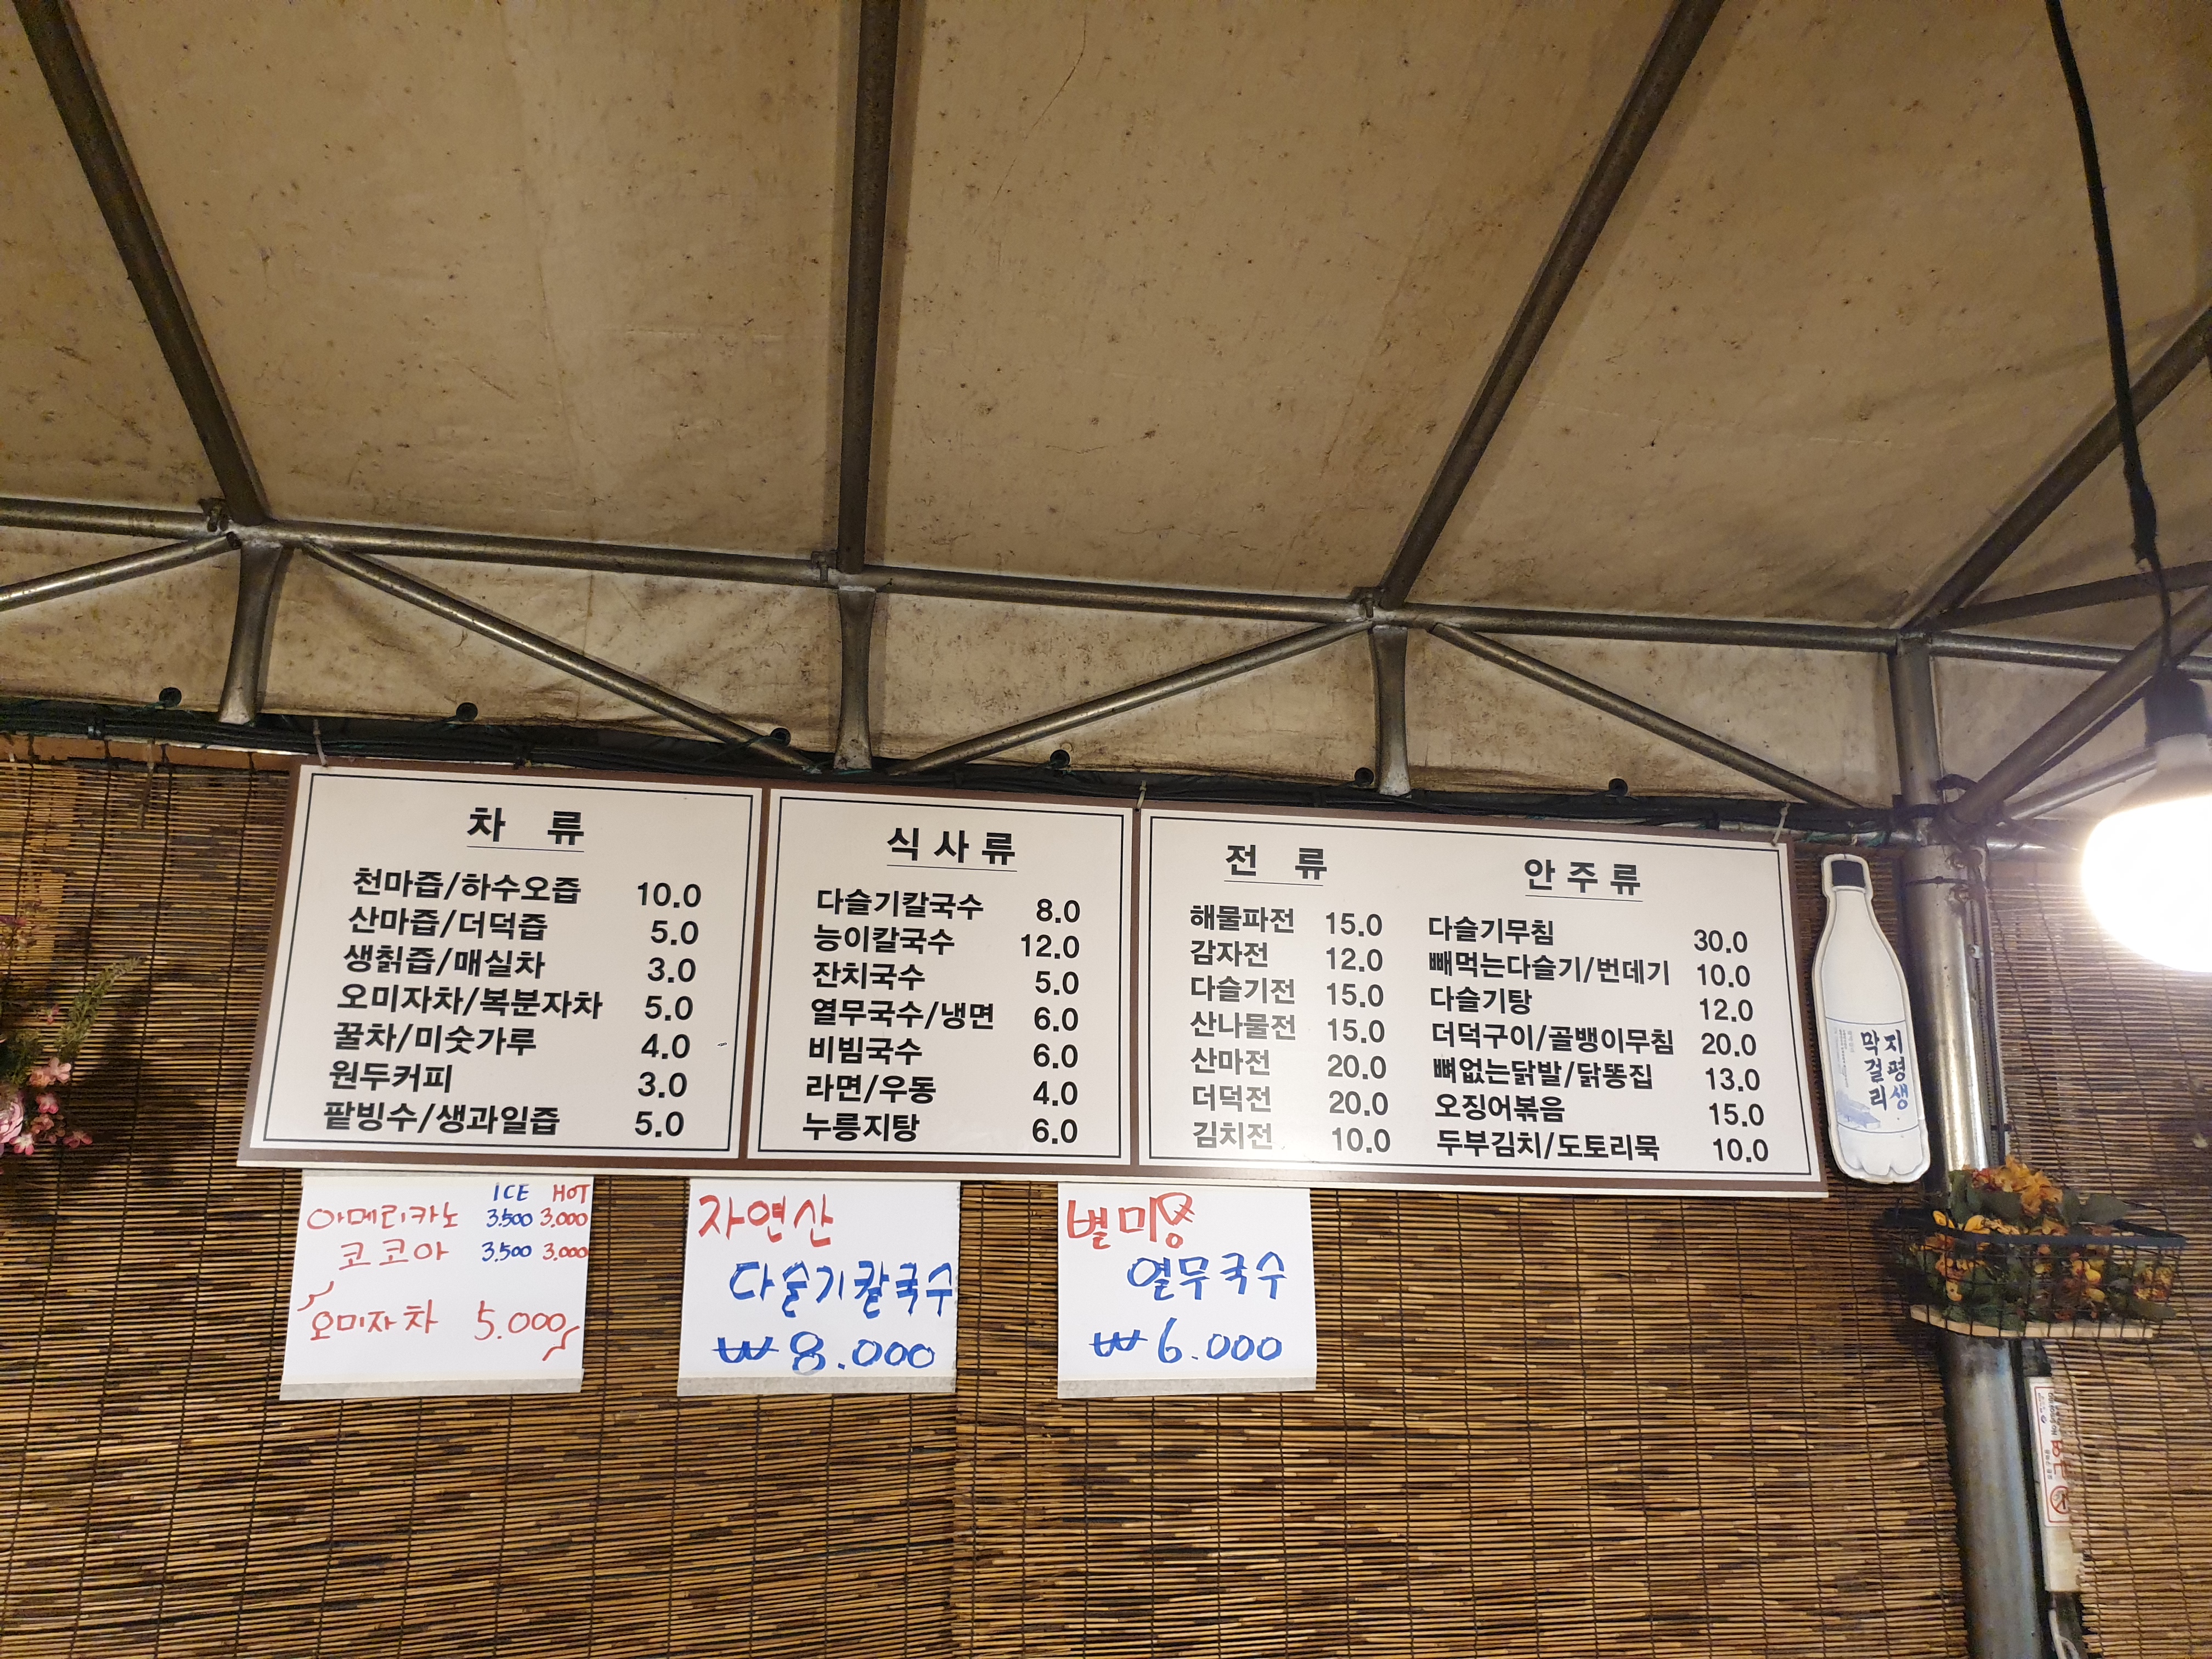 차 류
천마즙/하수오즙 10.0
산마즙/더덕즙 5.0
생칡즙/매실차 3.0
오미자차/복분자차 5.0
꿀차/미숫가루 4.0
원두커피 3.0
팥빙수/생과일즙 5.0
식 사 류
다슬기칼국수 8.0
능이칼국수 12.0
잔치국수 5.0
열무국수/냉면 6.0
비빔국수 6.0
라면/우동 4.0
누룽지탕 6.0
전 류
해물파전 15.0
감자전 12.0
다슬기전 15.0
산나물전 15.0
산마전 20.0
더덕전 20.0
김치전 10.0
안 주 류
다슬기무침 30.0
빼먹는다슬기/번데기 10.0
다슬기탕 12.0
더덕구이/골뱅이무침 20.0
뼈없는닭발/닭똥집 13.0
오징어볶음 15.0
두부김치/도토리묵 10.0
지평생
막걸리
ICE HOT
아메리카노 3.500 3.000
코코아 3.500 3.000
오미자차 5.000
자연산
다슬기칼국수
₩8.000
별미
열무국수
₩6.000